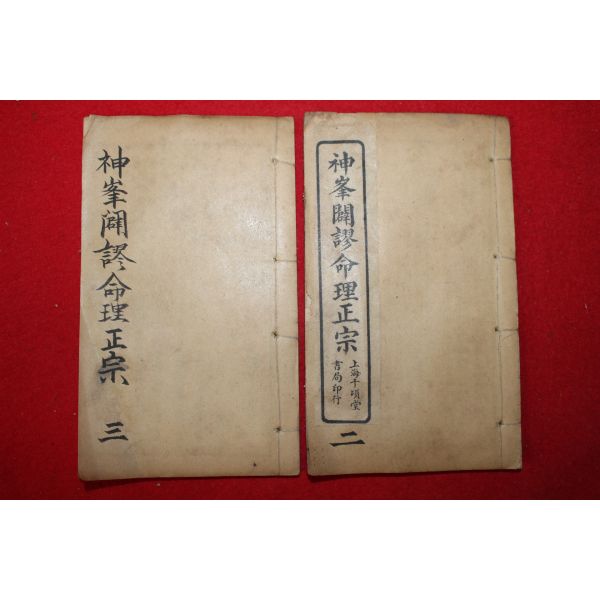 神峯闢謬命理正宗
三
神峯闢謬命理正宗
上海千頃堂
書局印行
二